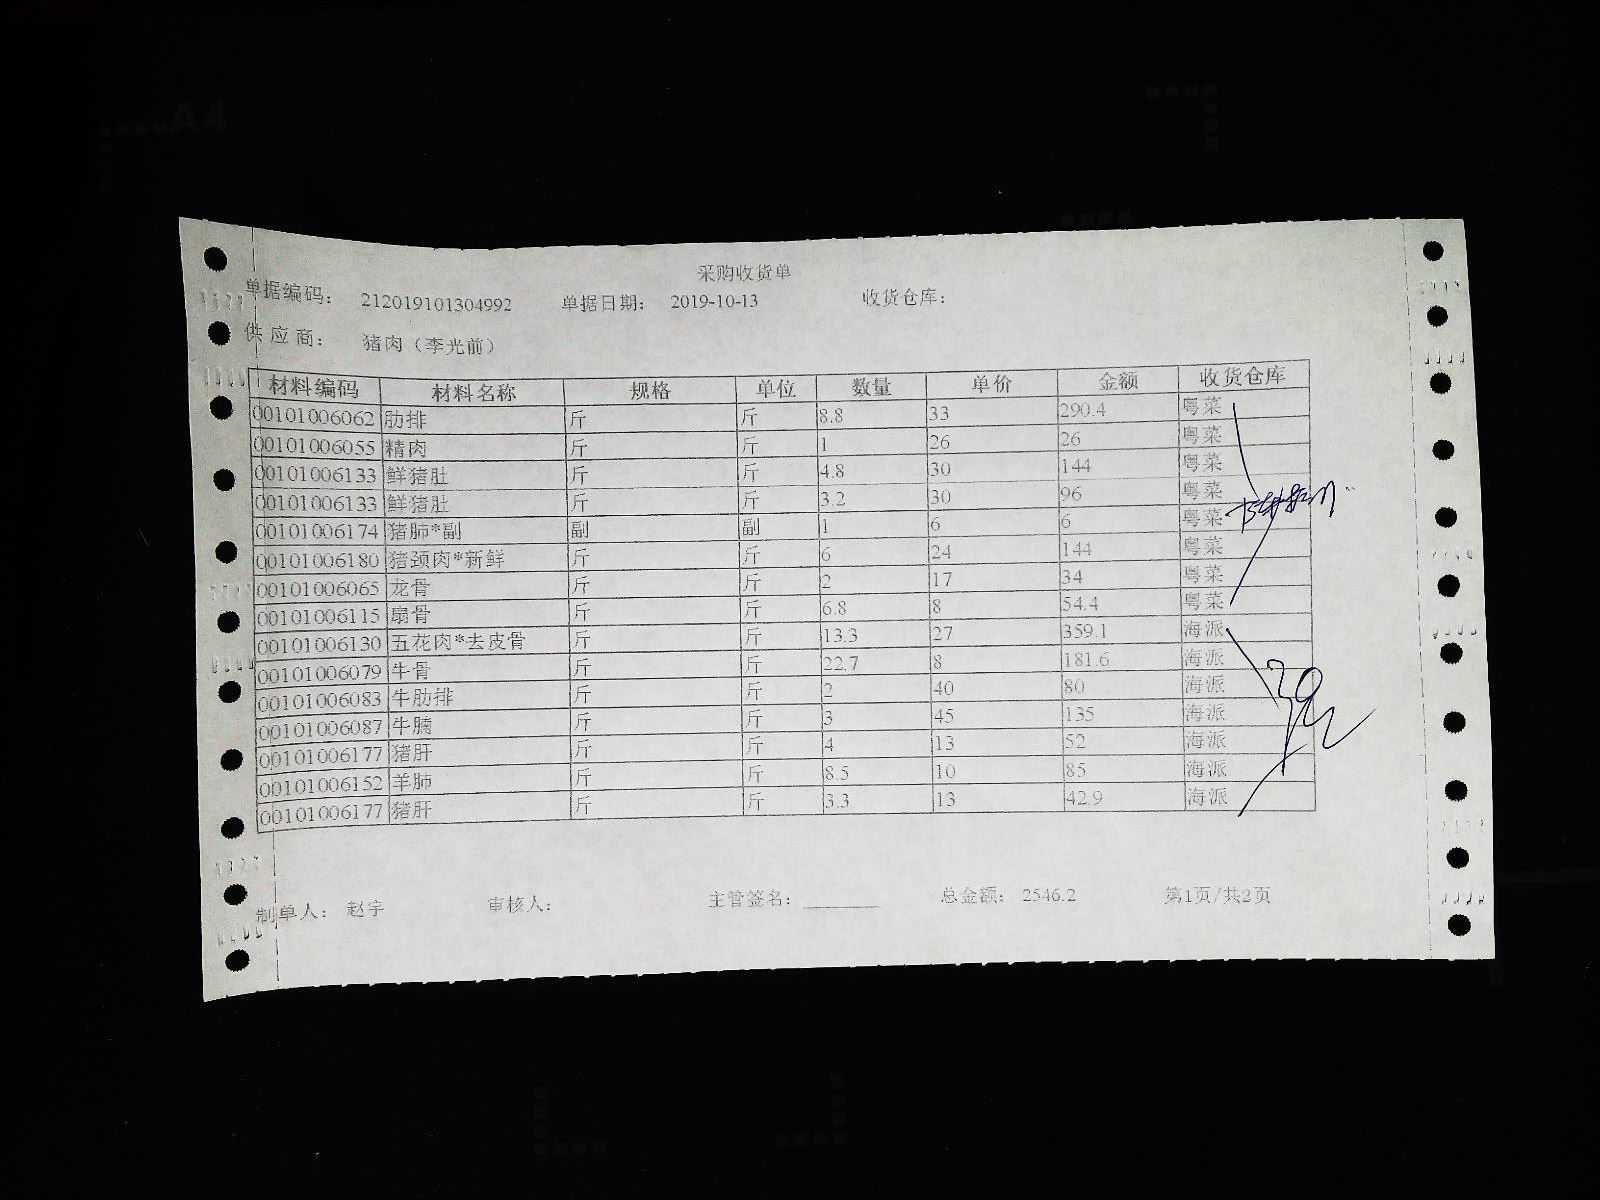 采购收货单
单据编码: 212019101304992 单据日期: 2019-10-13 收货仓库:
供应商: 猪肉（李光前）
材料编码 材料名称 规格 单位 数量 单价 金额 收货仓库
00101006062 肋排 斤 斤 8.8 33 290.4 粤菜
00101006055 精肉 斤 斤 1 26 26 粤菜
00101006133 鲜猪肚 斤 斤 4.8 30 144 粤菜
00101006133 鲜猪肚 斤 斤 3.2 30 96 粤菜
00101006174 猪肺*副 副 副 1 6 6 粤菜
00101006180 猪颈肉*新鲜 斤 斤 6 24 144 粤菜
00101006065 龙骨 斤 斤 2 17 34 粤菜
00101006115 扇骨 斤 斤 6.8 8 54.4 粤菜
00101006130 五花肉*去皮骨 斤 斤 13.3 27 359.1 海派
00101006079 牛骨 斤 斤 22.7 8 181.6 海派
00101006083 牛肋排 斤 斤 2 40 80 海派
00101006087 牛腩 斤 斤 3 45 135 海派
00101006177 猪肝 斤 斤 4 13 52 海派
00101006152 羊肺 斤 斤 8.5 10 85 海派
00101006177 猪肝 斤 斤 3.3 13 42.9 海派
制单人: 赵宇 审核人: 主管签名: 总金额: 2546.2 第1页/共2页